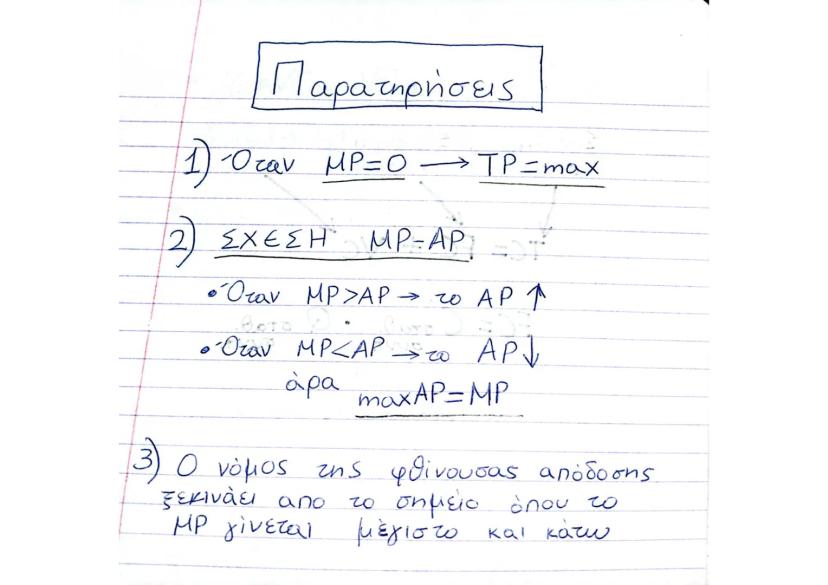 Παρατηρήσεις
1) Όταν MP=0 → TP=max
2) ΣΧΕΣΗ MP-AP
• Όταν MP>AP → το AP ↑
• Όταν MP<AP → το AP ↓
άρα maxAP=MP
3) Ο νόμος της φθίνουσας απόδοσης
ξεκινάει απο το σημείο όπου το
MP γίνεται μέγιστο και κάτω